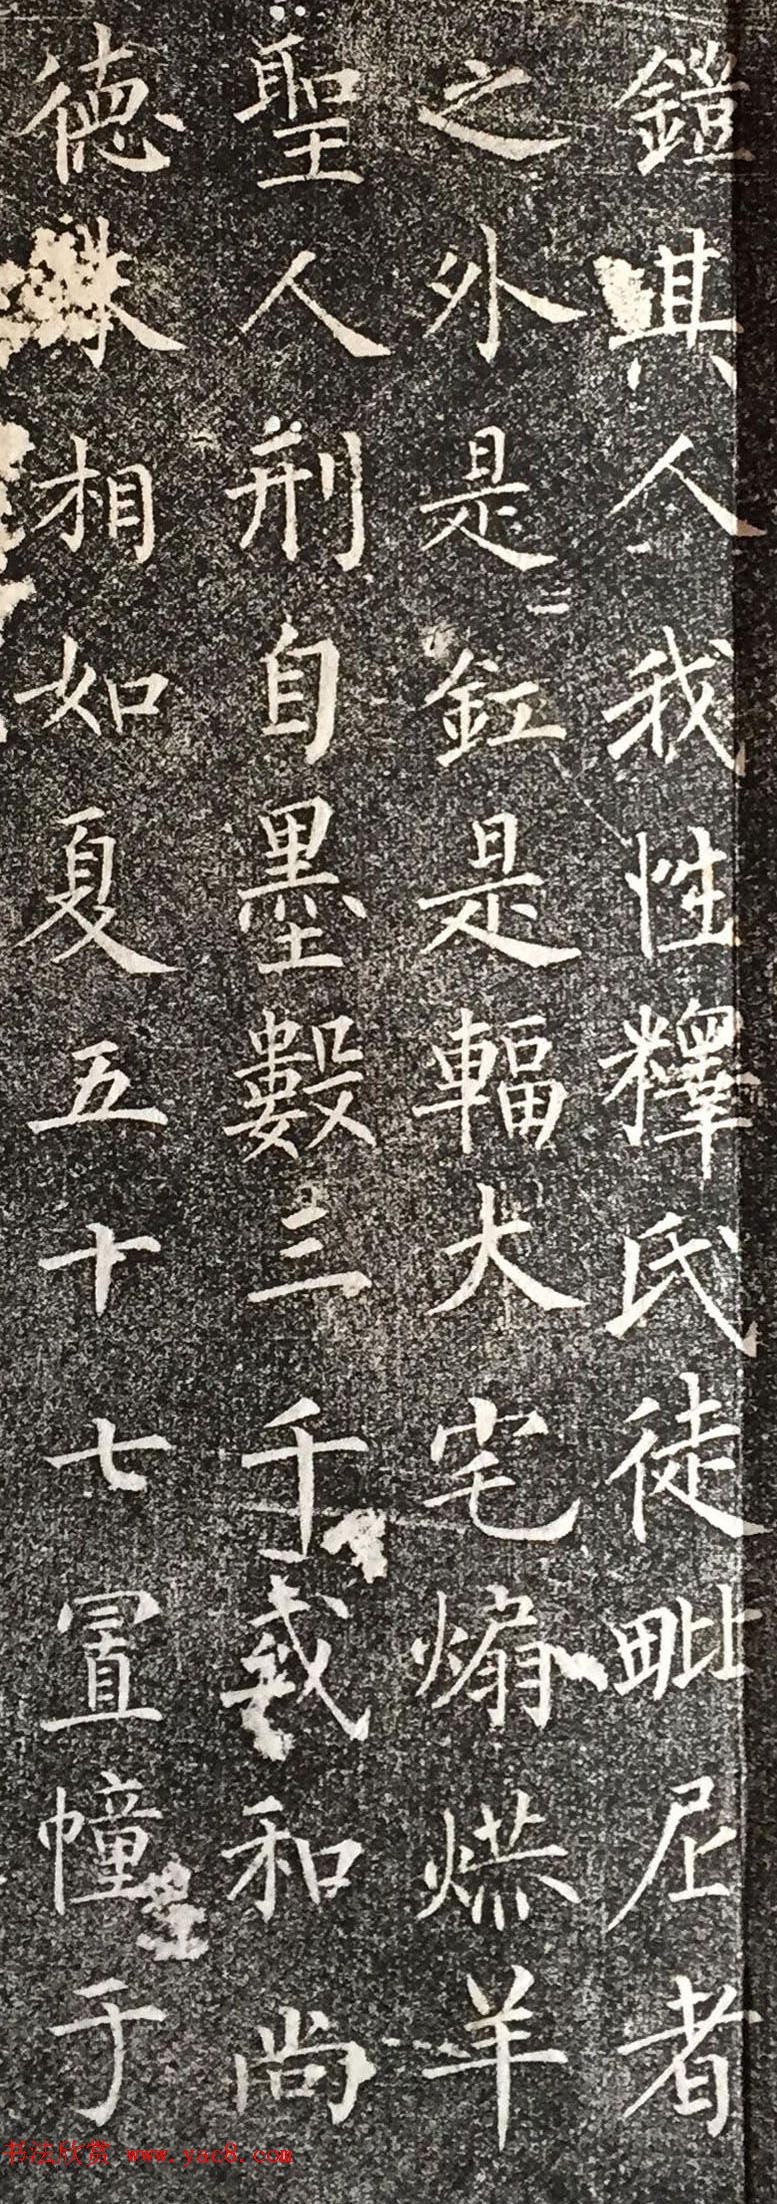 鎧其人我性釋氏徒毗尼者
之外是釭是輻大宅煽㷫羊
聖人刑自墨數三千羲和尚
德殊相如夏五十七置幢于
书法欣赏 www.yac8.com